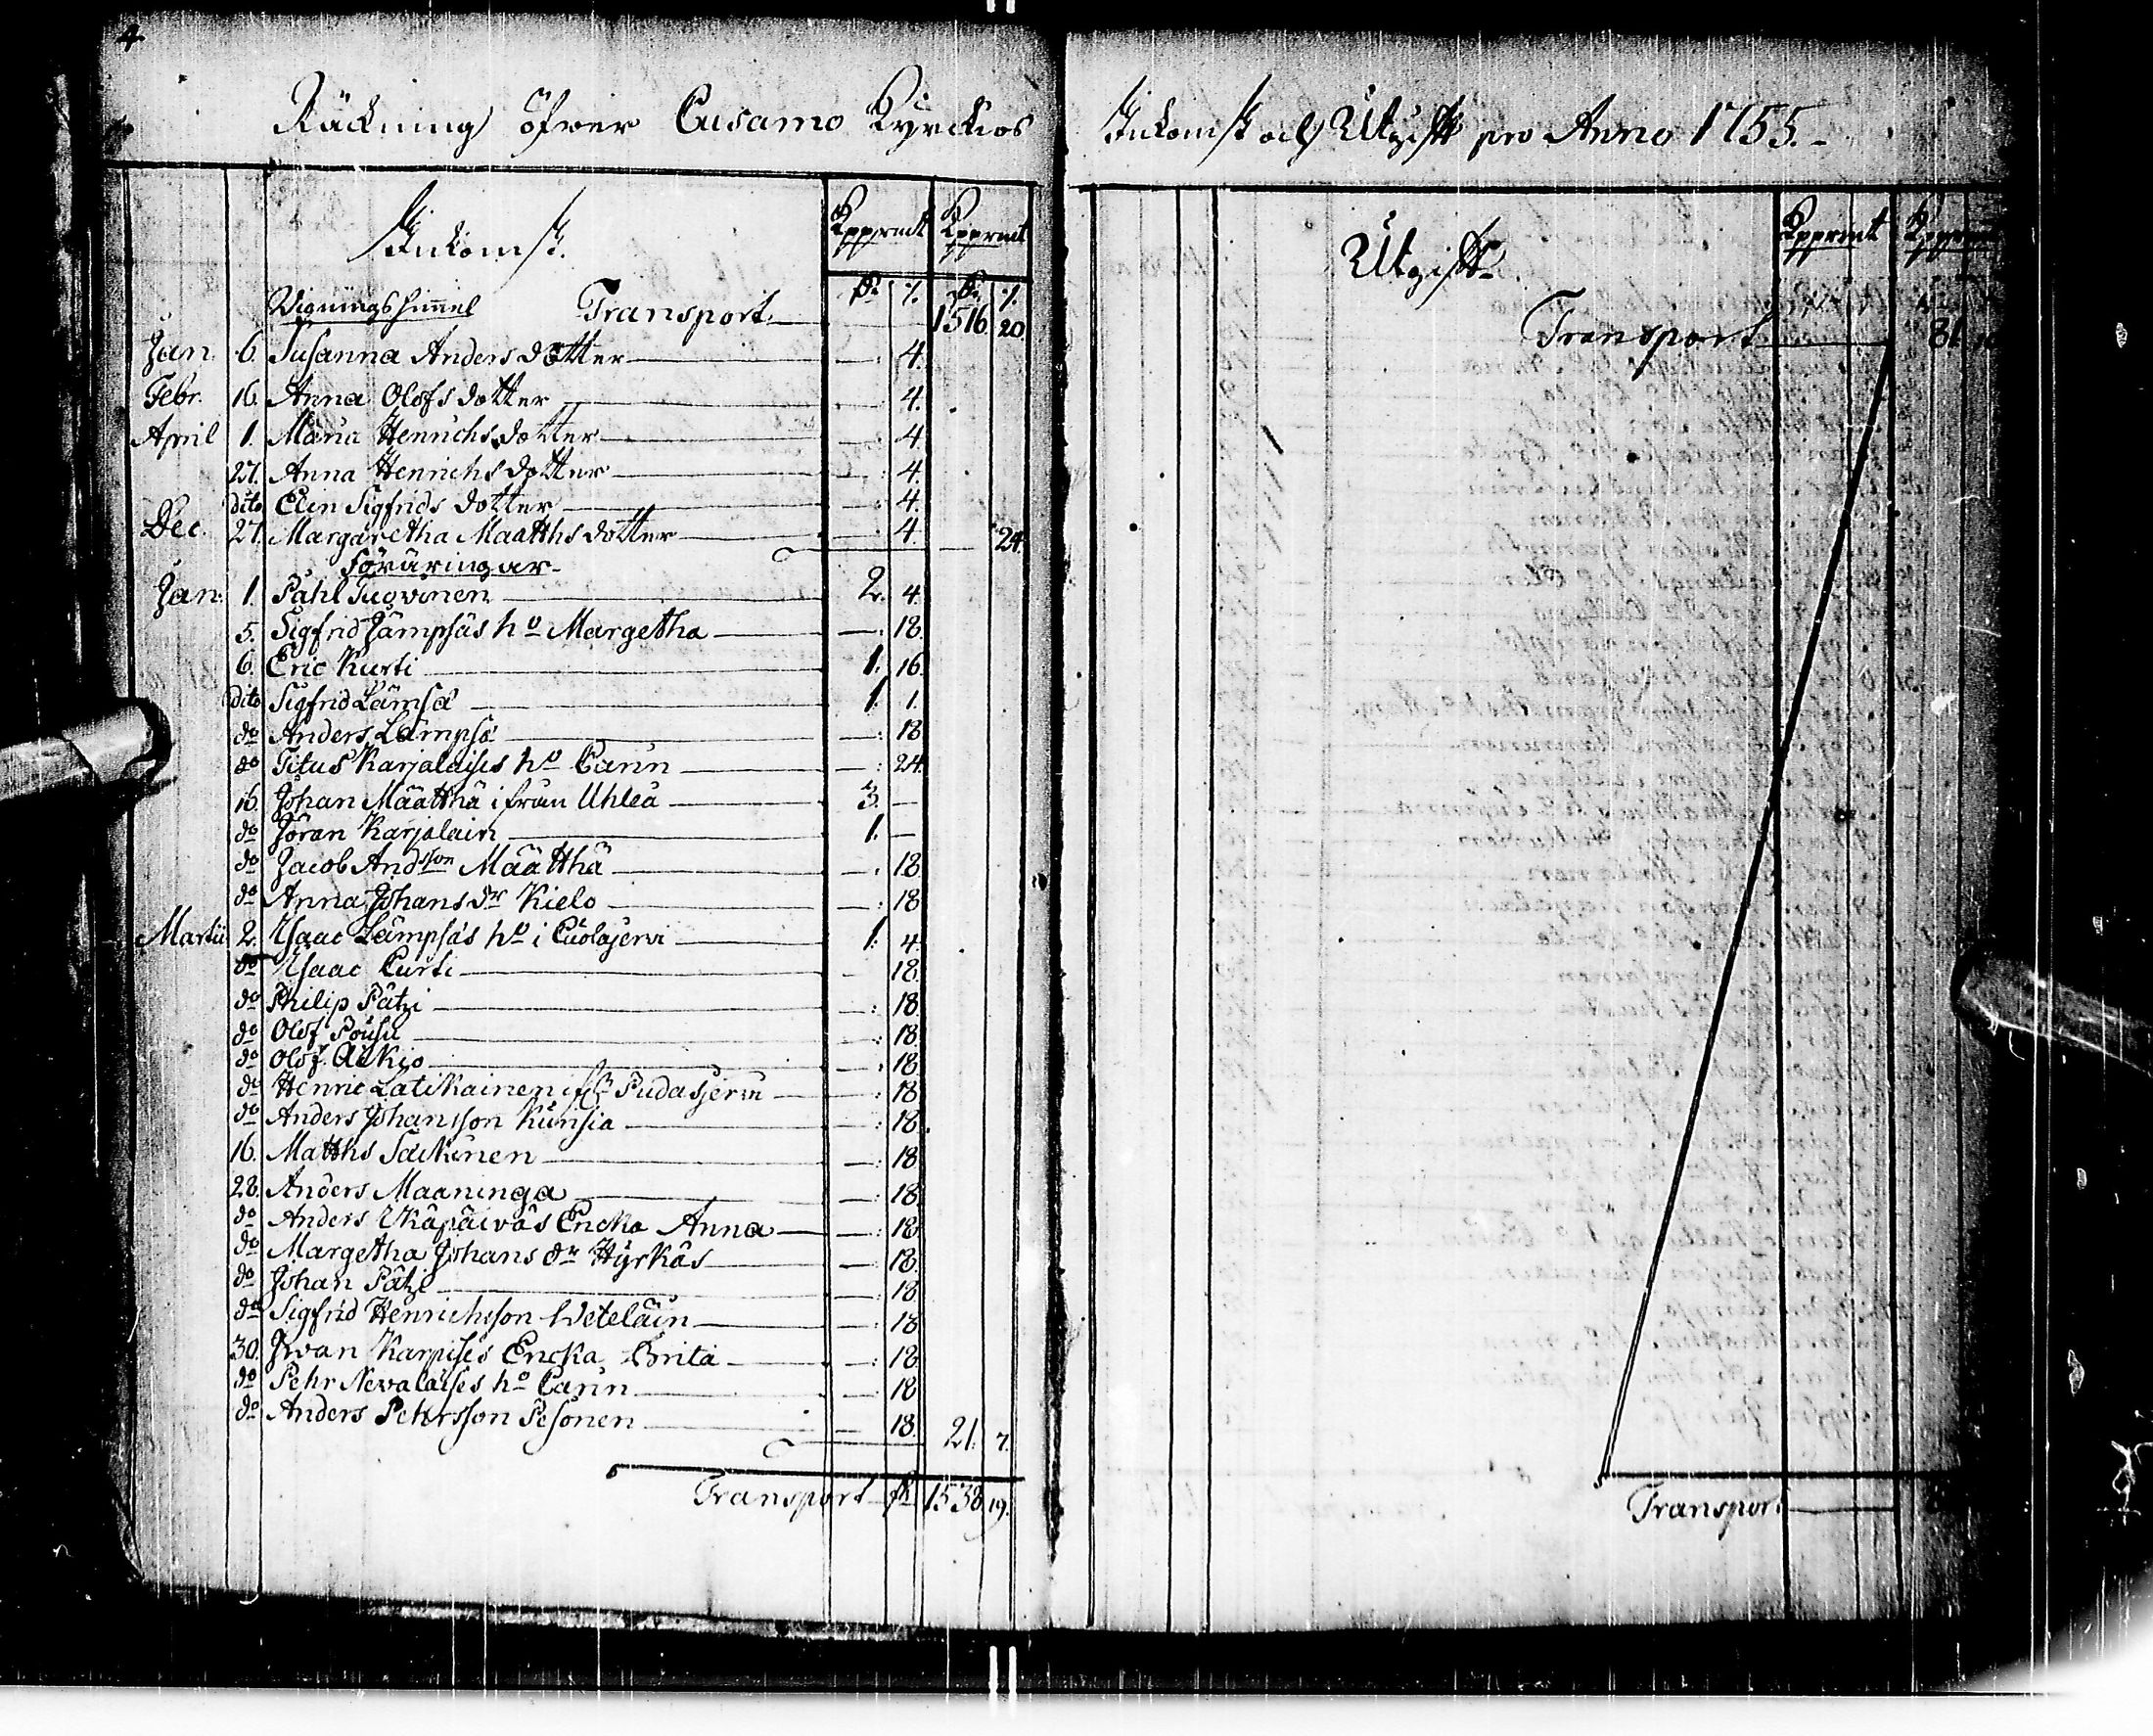 4
Räckning öfwer Cusamo Kyrckios
Inkomst.
Kopprmt Kopprmt
Wigningshimmel Transport 1516. 20.
Jan. 6. Susanna Anders dotter — 4.
Febr. 16. Anna Olofs dotter — 4.
April 1. Maria Henrichs dotter — 4
27. Anna Henrichs dotter — 4.
dito Elin Sigfrids dotter — 4.
Dec. 27. Margaretha Maatths dotter — 4. — 24.
Föräringar
Jan. 1. Påhl Tuovinen 2. 4.
5. Sigfrid Jämpsäs ho Margetha — 18.
6. Eric Kurti 1. 16.
dito Sigfrid Lämsä 1. 1.
do Anders Lämpsä — 18
do Titus Karjalaises ho Carin — 24.
16. Johan Määtthä ifrån Uhleå 3. —
do Jöran Karjalain 1. —
do Jacob Andsson Määtthä — 18
do Anna Johans dr Kielo — 18
Martii 2. Isaac Lämpsäs ho i Cuolajerwi 1. 4.
do Isaac Curti — 18.
do Philip Pätzi — 18
do Olof Pousu — 18
do Olof Ackio — 18
do Henric Latikainen ifr Pudasjerwi — 18
do Anders Johansson Kunsia — 18.
16. Matths Säkkinen — 18
28. Anders Maaninga — 18
do Anders Ykäpäiväs Encka Anna — 18
do Margetha Johans dr Hyrkäs — 18.
do Johan Pätzi — 18
do Sigfrid Henrichsson Weteläin — 18
30. Iwan Karpises Encka Brita — 18
do Pehr Nevalaises ho Carin — 18
do Anders Pehrsson Pesonen — 18. 21. 7.
Transport 1538 19.
Inkomst och Utgift pro Anno 1755.
Utgift.
Kopprmt
Transport 81
Transport